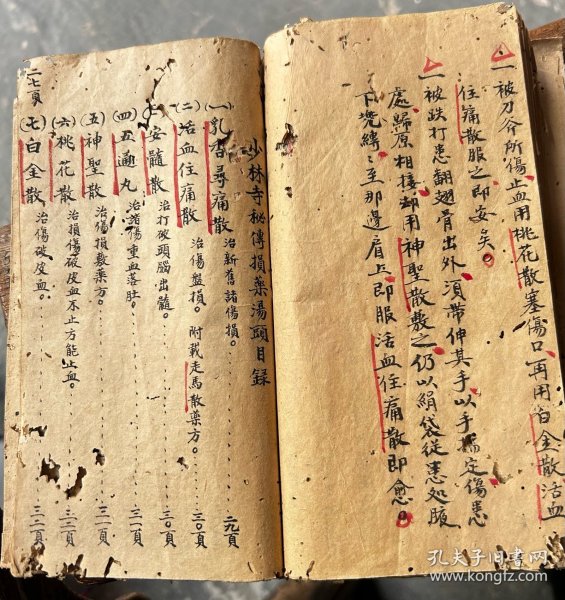 一被刀斧所傷止血用桃花散塞傷口再用白全散活血
住痛散服之即安矣。
一被跌打患翻翅骨出外須帶伸其手以手揣定傷患
處歸原相接却用神聖散敷之仍以絹袋從患処腋
下兜縛〻至那邊肩上即服活血住痛散即愈。
少林寺秘傳損藥湯頭目錄
(一)乳香尋痛散 治新舊諸傷損。 二九頁
(二)活血住痛散 治傷盤損。附載走馬散藥方。 三〇頁
安髓散 治打破頭腦出髓。 三〇頁
(四)五通丸 治諸傷重血落肚。 三一頁
(五)神聖散 治傷損敷藥方。 三一頁
(六)桃花散 治損傷破皮血不止方能止血。 三二頁
(七)白全散 治傷破皮血。 三二頁
二七頁
孔夫子旧書网
www.kongfz.com